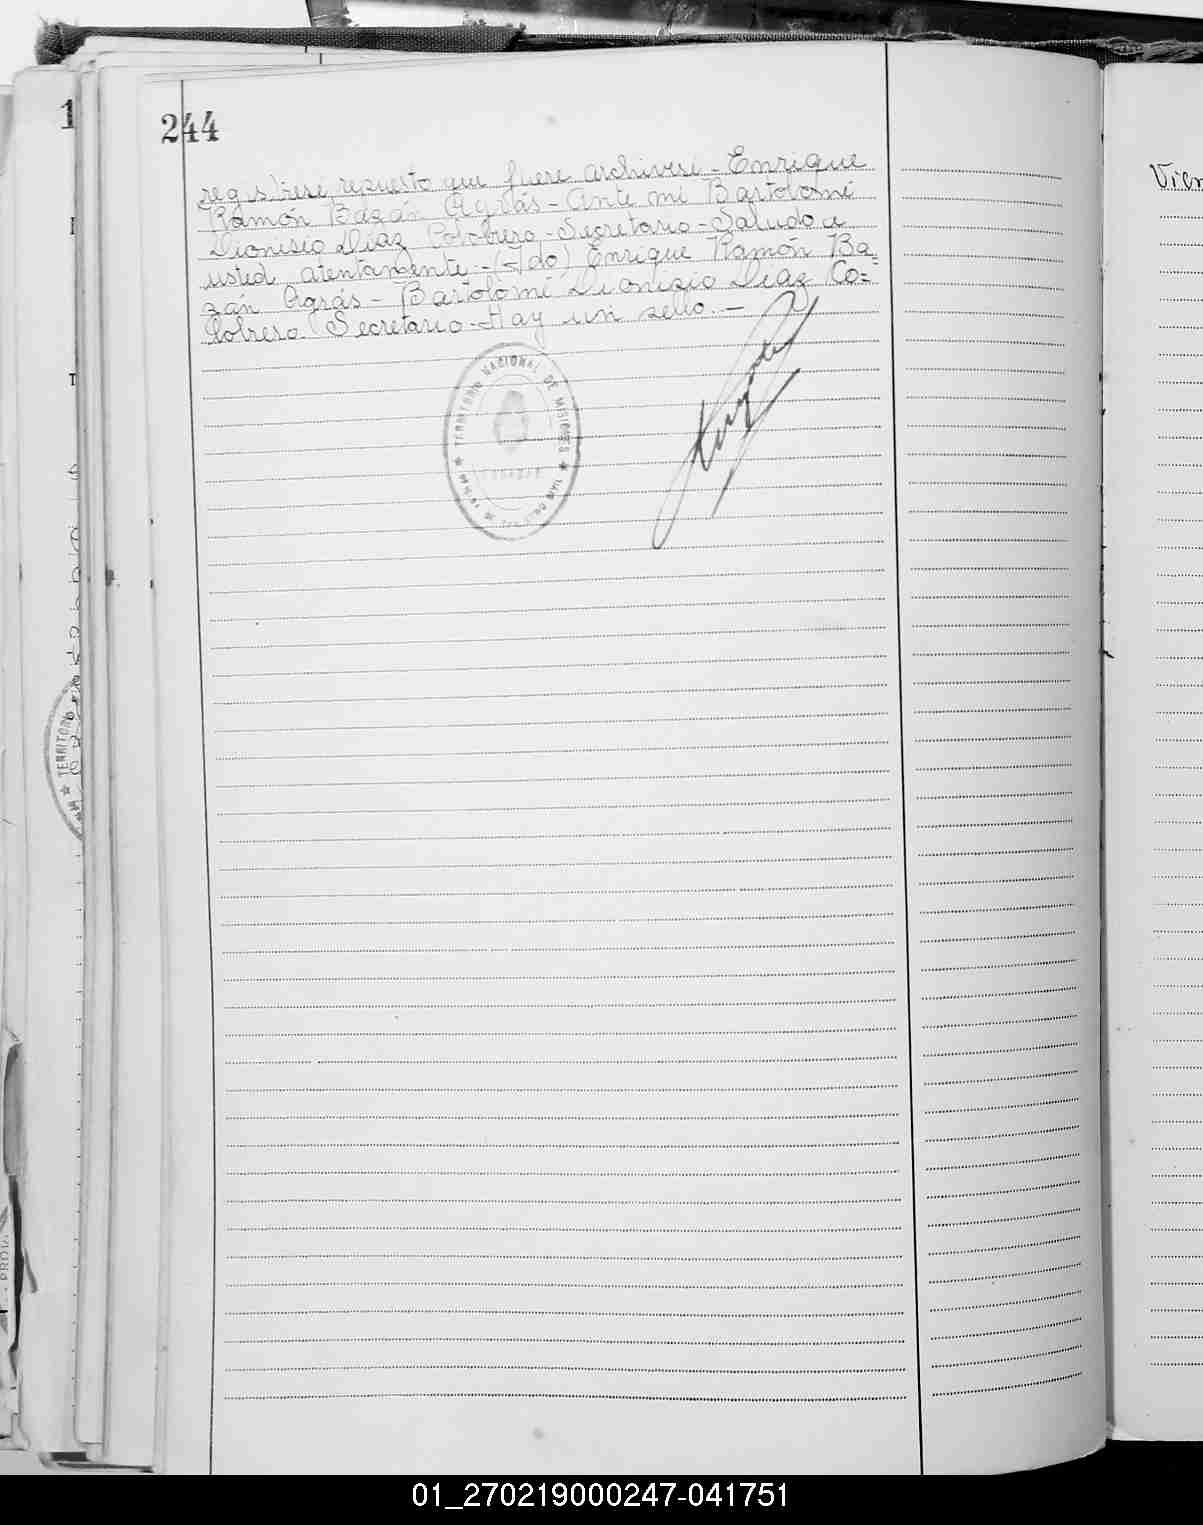 244
regístrese repuesto que fuere archívese - Enrique
Ramón Bazán Agrás - Ante mi Bartolomé
Dionisio Díaz Colobrero - Secretario - Saludo a
usted atentamente - (Fdo) Enrique Ramón Ba=
zán Agrás - Bartolomé Dionisio Díaz Co=
lobrero. Secretario - Hay un sello. -
TERRITORIO NACIONAL DE MISIONES
TERRITORIO
Vier
01_270219000247-041751